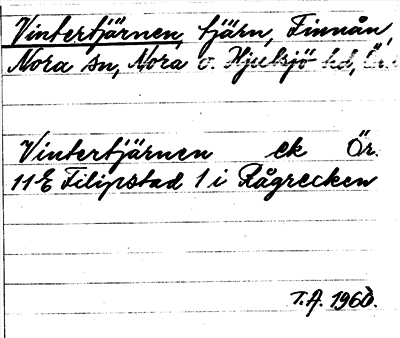 Vintertjärnen, tjärn, Finnån,
Nora sn, Nora o. Hjulsjö hd, Ör.
Vintertjärnen ek Ör.
11E Filipstad 1 i Rågrecken
T.A. 1960.